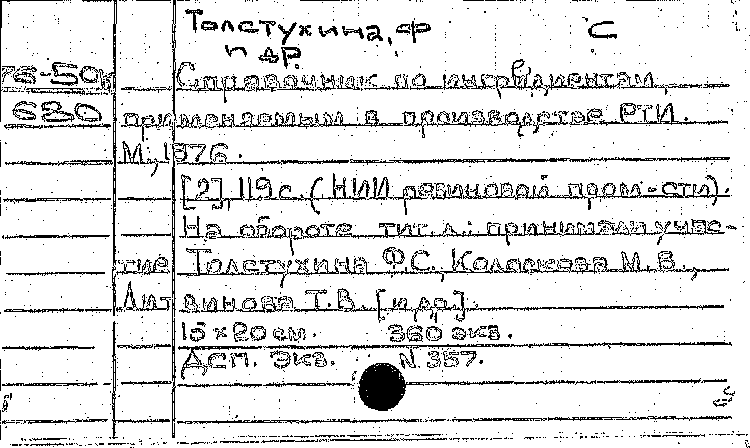 Толстухина, Ф С
и др.
76-50к Справочник по ингредиентам,
680 применяемым в производстве РТИ.
М., 1976.
[2], 119 с. (НИИ резиновой пром-сти).
На обороте тит. л.: принимали учас-
тие Толстухина Ф.С., Колоскова М.В.,
Литвинова Т.В. [и др.].
15 × 20 см. 360 экз.
ДСП. Экз. N 357.